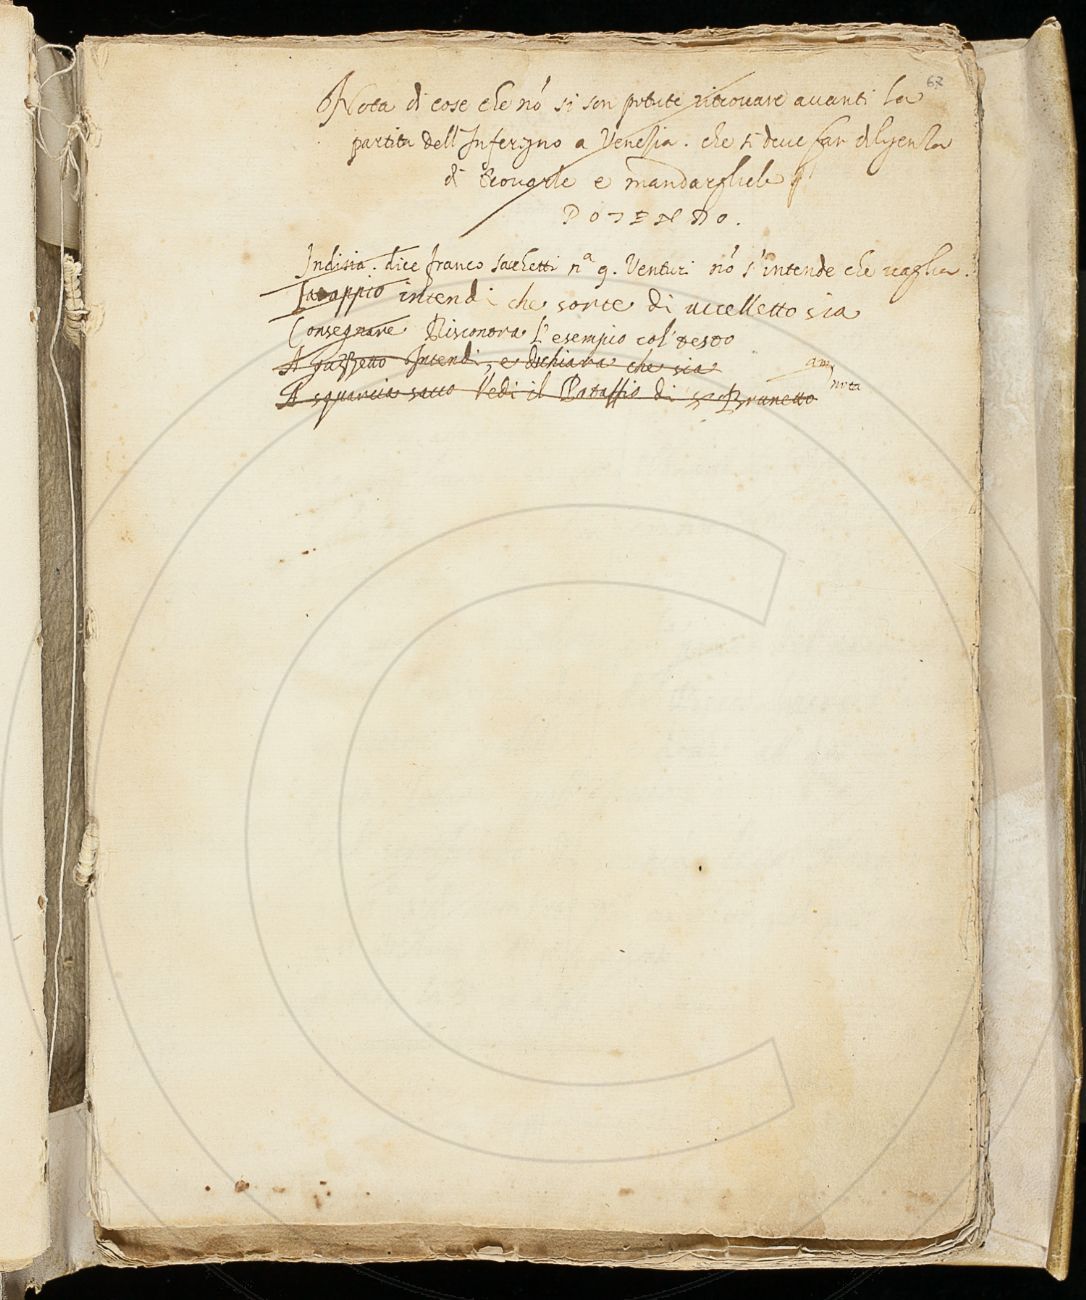 67
Nota di cose che nō si son potute ritrouare auanti la
partita dell'Inferigno a Venezia. che si deue far diligenza
di trouarle e mandargliele
POTENDO.
Indisia. dice franco sacchetti nª 9. Venturi nō s'intende che uaglia.
intendi che sorte di uccelletto sia
Consegnare Riscontra l'esempio col testo
A guazzetto Intendi, e dichiara che sia
A squarcia sacco Vedi il Pataffio di Ser Brunetto